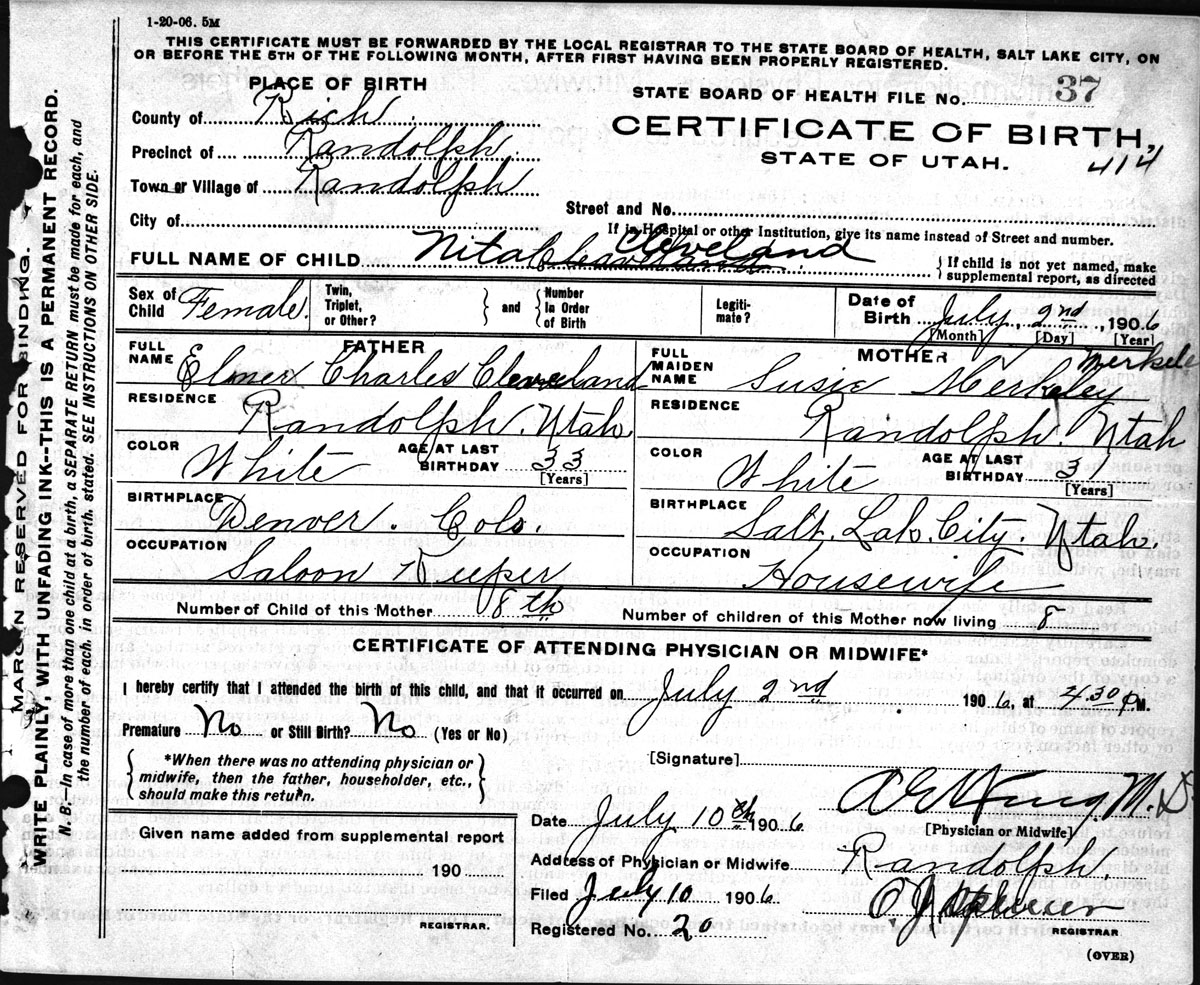 1-20-06. 5M
THIS CERTIFICATE MUST BE FORWARDED BY THE LOCAL REGISTRAR TO THE STATE BOARD OF HEALTH, SALT LAKE CITY, ON
OR BEFORE THE 5TH OF THE FOLLOWING MONTH, AFTER FIRST HAVING BEEN PROPERLY REGISTERED.
PLACE OF BIRTH
STATE BOARD OF HEALTH FILE NO. 37
County of Rich
CERTIFICATE OF BIRTH,
Precinct of Randolph
STATE OF UTAH. 414
Town or Village of Randolph
City of
Street and No.
If in Hospital or other Institution, give its name instead of Street and number.
FULL NAME OF CHILD Nita Cleveland
If child is not yet named, make
supplemental report, as directed
Sex of Child Female.
Twin, Triplet, or Other?
and
Number In Order of Birth
Legiti- mate?
Date of Birth July, 2nd, 1906
[Month] [Day] [Year]
FATHER
FULL NAME Elmer Charles Cleveland
MOTHER
FULL MAIDEN NAME Susie Merkeley Merkele
RESIDENCE Randolph. Utah
RESIDENCE Randolph. Utah
COLOR White
AGE AT LAST BIRTHDAY 33
[Years]
COLOR White
AGE AT LAST BIRTHDAY 31
[Years]
BIRTHPLACE Denver. Colo.
BIRTHPLACE Salt. Lak. City. Utah.
OCCUPATION Saloon Keeper
OCCUPATION Housewife
Number of Child of this Mother 8th
Number of children of this Mother now living 8
CERTIFICATE OF ATTENDING PHYSICIAN OR MIDWIFE*
I hereby certify that I attended the birth of this child, and that it occurred on July 2nd 1906, at 4.30 P.M.
Premature No or Still Birth? No (Yes or No)
*When there was no attending physician or
midwife, then the father, householder, etc.,
should make this return.
[Signature]
M.D.
[Physician or Midwife]
Date July 10th 1906
Address of Physician or Midwife Randolph.
Filed July 10 1906
Registered No. 20
REGISTRAR
(OVER)
Given name added from supplemental report
190
REGISTRAR.
MARGIN RESERVED FOR BINDING.
WRITE PLAINLY, WITH UNFADING INK--THIS IS A PERMANENT RECORD.
N. B.—In case of more than one child at a birth, a SEPARATE RETURN must be made for each, and
the number of each, in order of birth, stated. SEE INSTRUCTIONS ON OTHER SIDE.